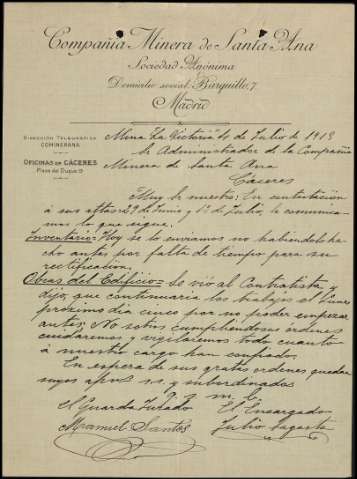 Compañia Minera de Santa Ana
Sociedad Anónima
Domicilio social: Barquillo, 7
Madrid
DIRECCIÓN TELEGRÁFICA
COMINERANA
OFICINAS EN CÁCERES
Mina "La Victoria" 4 de Julio de 1918
Sr Administrador de la Compañia
Minera de Santa Ana
Cáceres
Muy Sr nuestro; En contestación
á sus attas 29 de Junio y 1º de Julio, le comunica-
mos lo que sigue:
Inventario = Hoy se lo enviamos no habiendolo he-
cho antes por falta de tiempo para su
rectificación;
Obras del Edificio = Se vió al Contratista y
dijo, que continuaria los trabajos el Lunes
próximo dia cinco por no poder empezar
antes; No sotros cumpliendo sus ordenes
cuidaremos y vigilaremos todo cuanto
á nuestro cargo han confiado.
En espera de sus gratas ordenes quedan
suyos afmos s.s. y subordinados
q. s. m. b.
El Guarda Jurado El Encargado
Manuel Santos Julio Sagasta